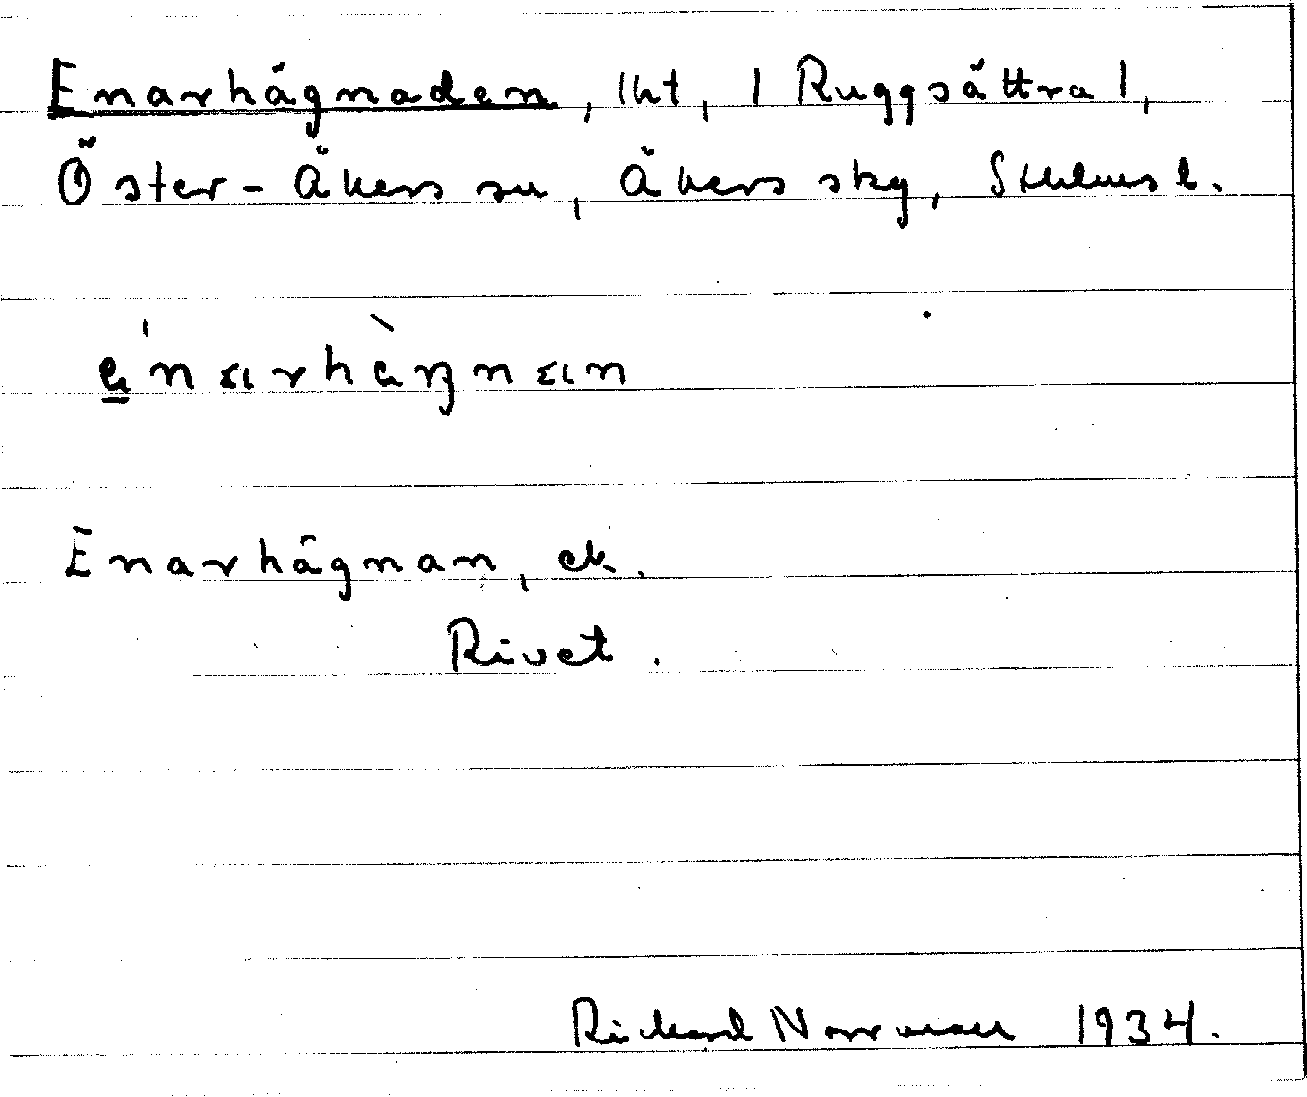 Enarhägnaden, lht, | Ruggsättra |,
Öster-Åkers sn, Åkers skg, Sthlms l.
Enarhägnan, ek.
Rivet.
Richard Norrman 1934.